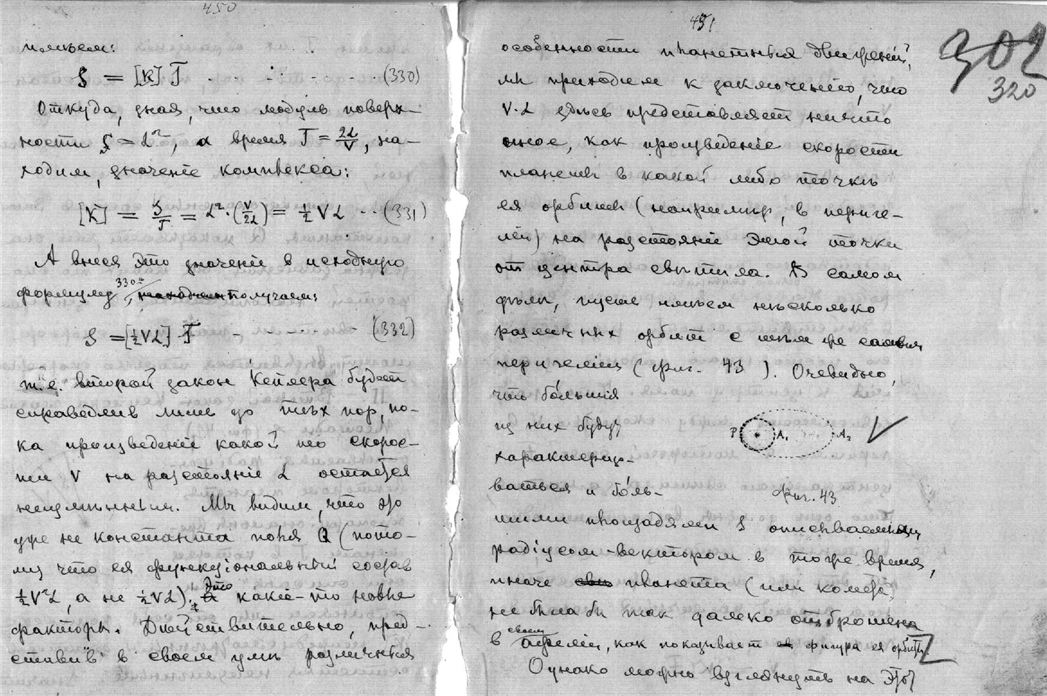 450
имѣемъ:
S = [K] T . . . . . (330)
Откуда, зная, что модуль поверх-
ности S = L², а время T = 2L/V, на-
ходим, значенiе комплекса:
[K] = S/T = L²·(V/2L) = ½ VL ·· (331)
А внеся это значенiе в исходную
формулу 330ю, находим получаем:
S = [½VL] T . . . . . (332)
т.е. второй закон Кеплера будет
справедлив лишь до тѣх пор, по-
ка произведенiе какой то скорос-
ти V на разстоянiе L остается
неизмѣнным. Мы видим, что это
уже не константа поля Q (пото-
му что ея функцiональный состав
½V²L, а не ½VL). Это какiе-то новые
факторы. Дѣйствительно, пред-
ставив в своем умѣ различныя
451
302
320
особенности планетныя движенiй,
мы приходим к заключенiю, что
V·L здѣсь представляет ничто
иное, как произведенiе скорости
планеты в какой либо точкѣ
ея орбиты (например, в периге-
лiи) на разстоянiе этой точки
от центра свѣтила. В самом
дѣлѣ, пусть имѣем нѣсколько
различных орбит с тѣм же самым
перигелiем (фиг. 43). Очевидно,
что бóльшiя
из них будут
характеризо-
ваться и бóль-
P A₁ A₂
Фиг. 43
шими площадями S описываемыми
радiусом-вектором в тоже время,
иначе планета (или комета)
не была бы так далеко отброшена
в своем афелiи, как показывает фигура ея орбиты
Однако можно взглянуть на это